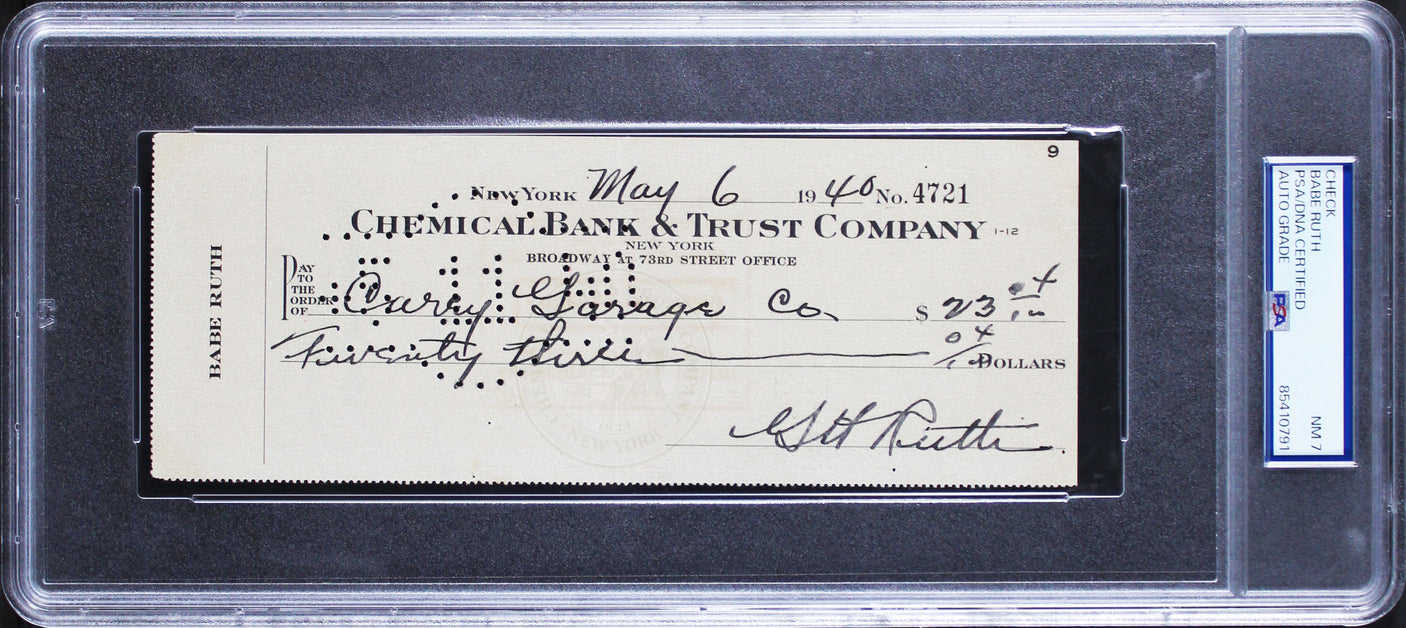 9
NEW YORK May 6 1940 No. 4721
CHEMICAL BANK & TRUST COMPANY 1-12
NEW YORK
BROADWAY AT 73RD STREET OFFICE
PAY TO THE ORDER OF Curry Garage Co. $ 23 04/100
Twenty three 04/100 DOLLARS
G H Ruth
BABE RUTH
NEW YORK
CHECK
BABE RUTH
PSA/DNA CERTIFIED
AUTO GRADE NM 7
PSA
85410791